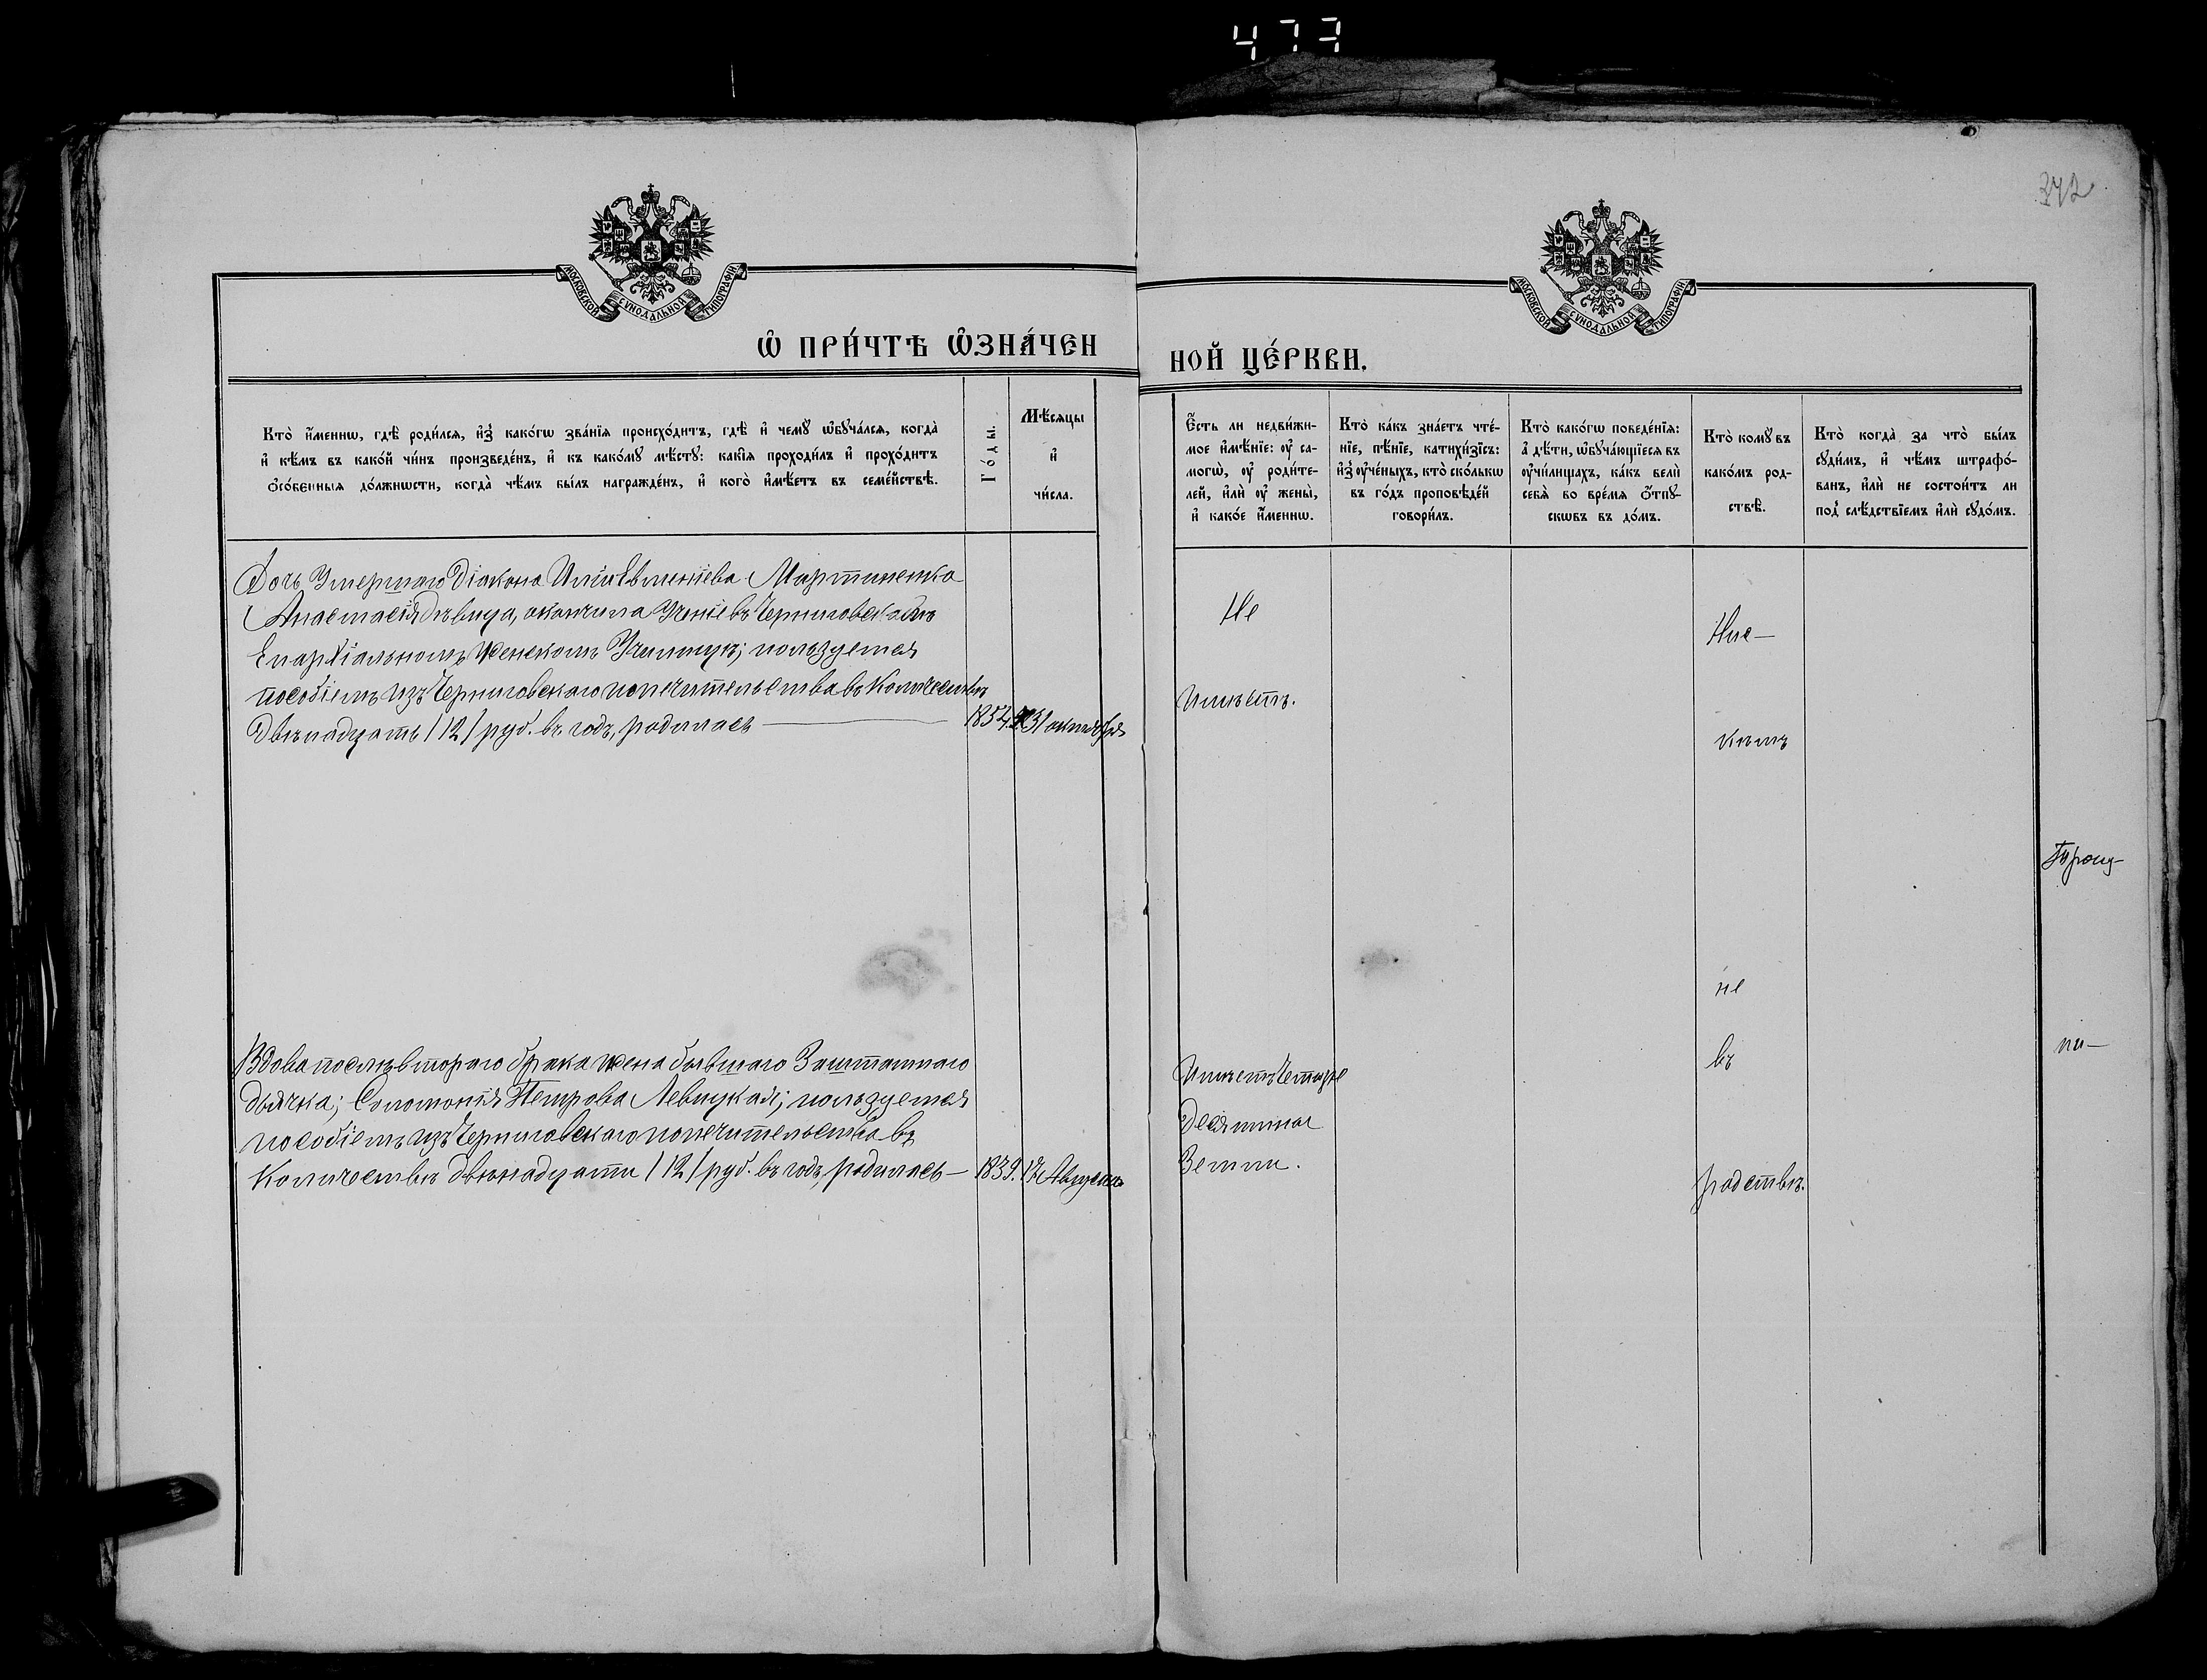 477
372
МОСКОВСКОЙ СѴНОДАЛЬНОЙ ТИПОГРАФІИ
МОСКОВСКОЙ СѴНОДАЛЬНОЙ ТИПОГРАФІИ
Ѽ ПРИ́ЧТѢ Ѽ҆ЗНА́ЧЕН
НОЙ ЦЕ́РКВИ.
Кто̀ и҆́меннѡ, гдѣ̀ роди́лся, и҆з̾ како́гѡ зва́нїя происхо́дитъ, гдѣ̀ и҆ чемꙋ̀ ѡ҆бꙋча́лся, когда̀
и҆ кѣ́мъ въ како́й чи́нъ произведе́нъ, и҆ къ како́мꙋ мѣ́стꙋ: какі̑я проходи́лъ и҆ прохо́дитъ
ѻ҆со́бенныя до́лжнѡсти, когда̀ чѣ́мъ бы́лъ награжде́нъ, и҆ кого̀ и҆мѣ́етъ въ семе́йствѣ.
Го́ды.
Мѣ́сяцы
и҆
чи́сла.
Є҆́сть ли недви́жи-
мое и҆мѣ́нїе: ᲂу҆ са-
могѡ̀, ᲂу҆ роди́те-
лей, и҆лѝ ᲂу҆ жены̀,
и҆ како́е и҆́меннѡ.
Кто̀ ка́къ зна́етъ чте́-
нїе, пѣ́нїе, катихи́зїсъ:
и҆з̾ ᲂу҆че́ныхъ, кто̀ ско́лькѡ
въ го́дъ проповѣ́дей
говори́лъ.
Кто̀ како́гѡ поведе́нїя:
а҆ дѣ́ти, ѡ҆бꙋча́ющїеся въ
ᲂу҆чи́лищахъ, ка́къ велѝ
себѧ̀ во вре́мя ѿпꙋ-
скѡвъ въ до́мъ.
Кто̀ комꙋ̀ въ
како́мъ род-
ствѣ̀.
Кто̀ когда̀ за что̀ бы́лъ
сꙋди́мъ, и҆ чѣ́мъ штрафо́-
ванъ, и҆лѝ не состои́тъ ли
под̾ слѣ́дствїемъ и҆лѝ сꙋдо́мъ.
Дочь Умершаго Діакона Иліи Евменіева Мартиненко
Анастасія дѣвица, окончила Ученіе въ Черниговскомъ
Епархіальномъ Женскомъ Училищѣ; пользуется
пособіемъ изъ Черниговскаго попечительства въ Количествѣ
двѣнадцать /12/ руб. въ годъ, родилась — 1854. 31 октября
Не
Имѣетъ.
Ние—
кѣмъ
не
въ
родствѣ.
Вдова послѣ втораго брака жена бывшаго Заштатнаго
дьячка; Соломонія Петрова Левицкая; пользуется
пособіемъ изъ Черниговскаго попечительства въ
Количествѣ двѣнадцати /12/ руб. въ годъ, родилась — 1839. Августа
Имѣетъ Четыре
Десятины
Земли.
ни—